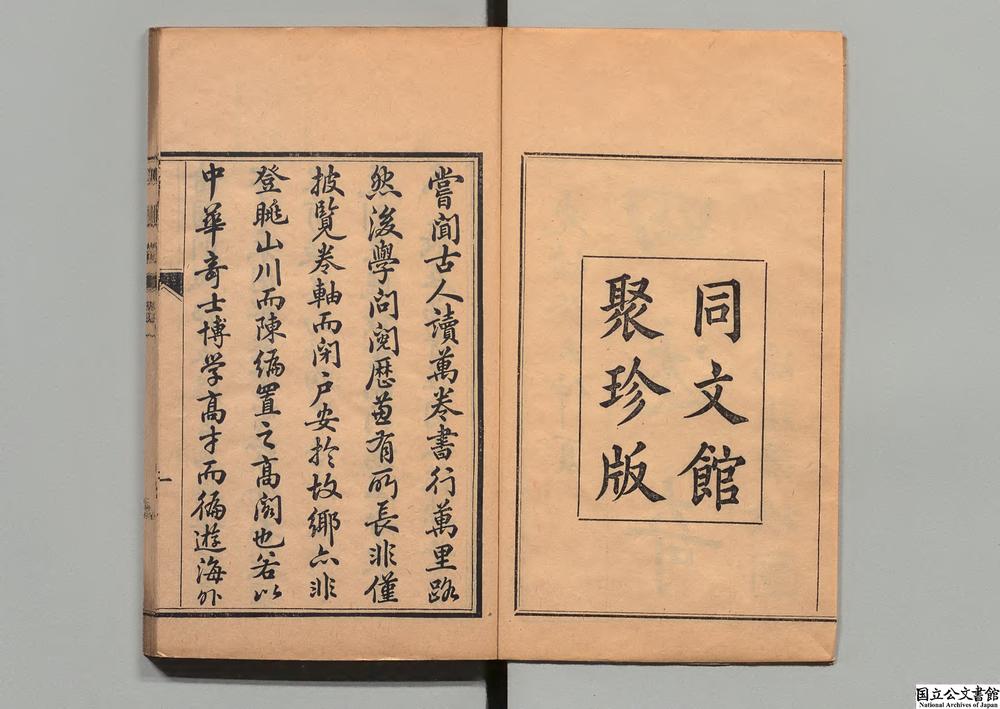 同文館
聚珍版
嘗聞古人讀萬卷書行萬里路
然後學問閱歷兼有所長非僅
披覽卷軸而閉戶安於故鄉亦非
登眺山川而陳編置之高閣也若以
中華奇士博学高才而徧遊海外
国立公文書館
National Archives of Japan